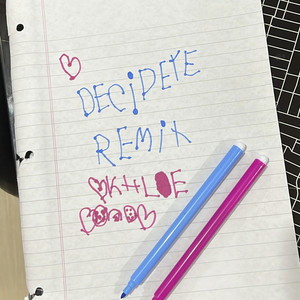 DECIDETE
REMIX
KHLOE